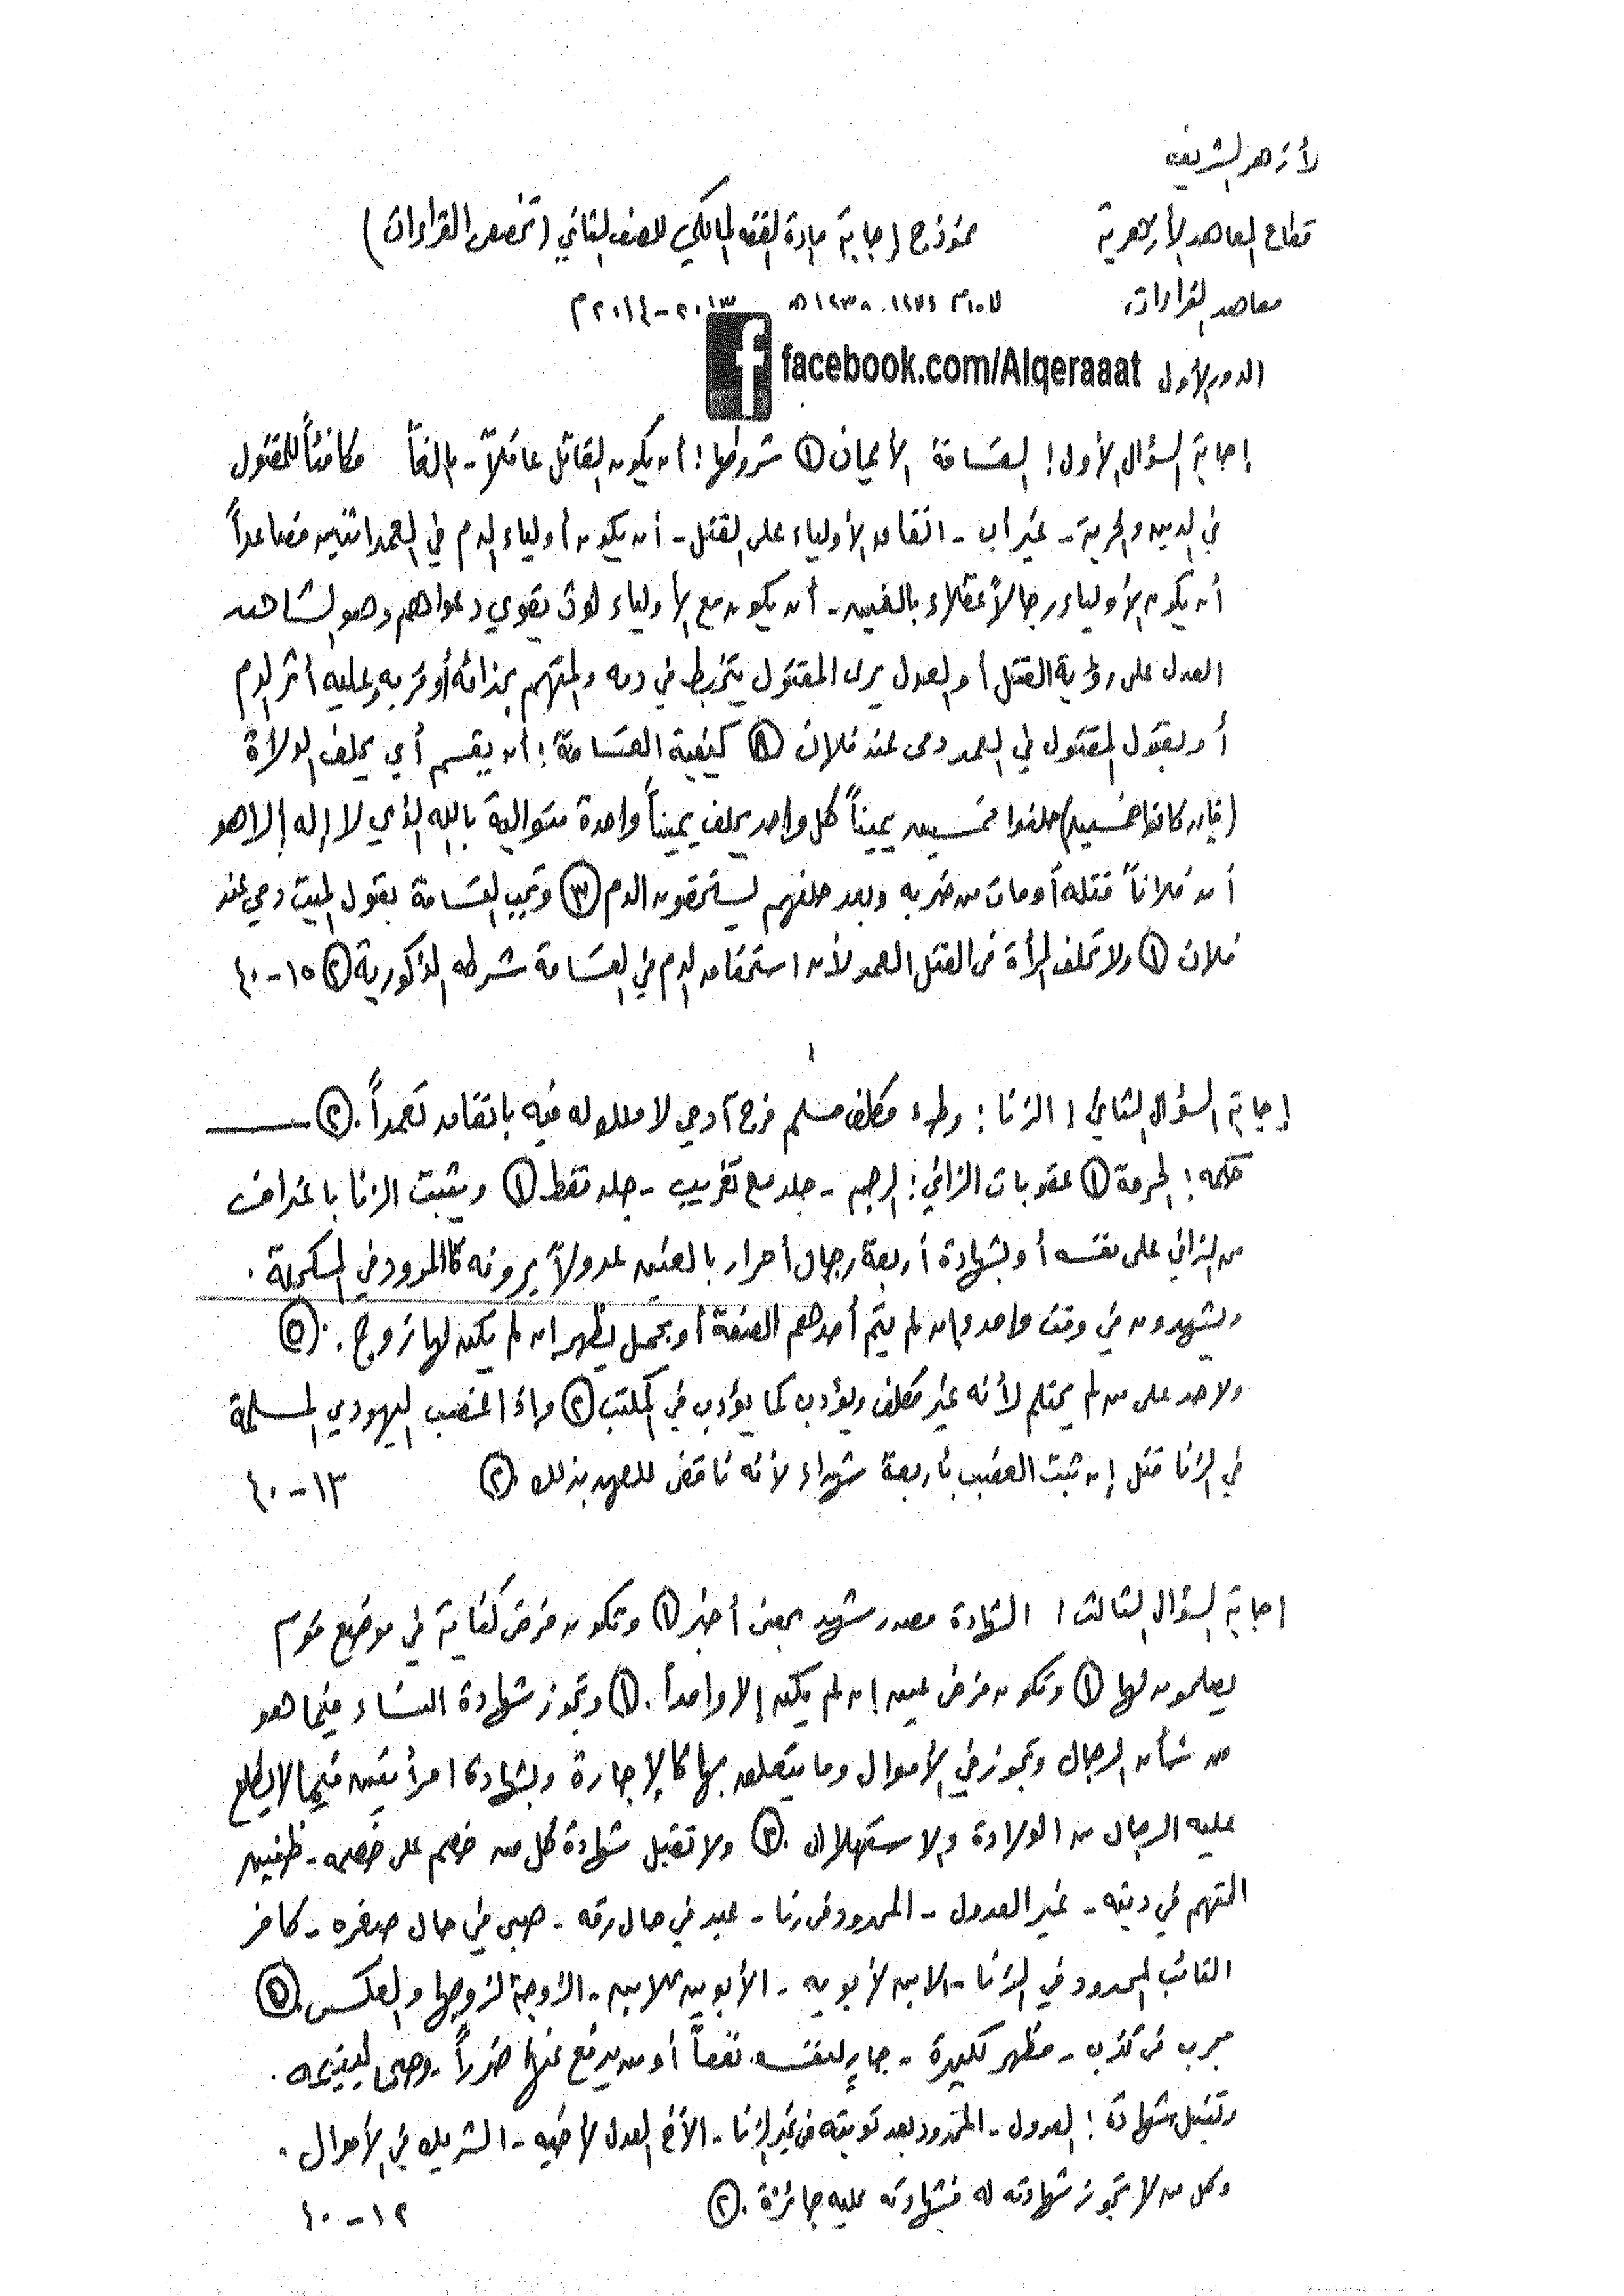 الأزهر الشريف
قطاع المعاهد الأزهرية نموذج إجابة مادة الفقه المالكي للصف الثاني (تخصص القراءات)
معاهد القراءات ٢٠١٣-٢٠١٤م
الدور الأول facebook.com/Alqeraaat
إجابة السؤال الأول: القسامة الأيمان ① شروطها: أن يكون القاتل عاقلاً - بالغاً مكافئاً للمقتول
في الدين والحرية - غير أب - اتفاق الأولياء على القتل - أن يكون أولياء الدم في العمد اثنين فصاعداً
أن يكون الأولياء رجالاً عقلاء بالغين - أن يكون مع الأولياء لوث يقوي دعواهم وهو الشاهد
العدل على رؤية القتل أو العدل يرى المقتول يتخبط في دمه والمتهم بحذائه أو قربه وعليه أثر الدم
أو يقول المقتول في العمد دمى عند فلان ⑤ كيفية القسامة: أن يقسم أي يحلف الولاة
(فإن كانوا خمسين) حلفوا خمسين يميناً كل واحد يحلف يميناً واحدة متوالية بالله الذي لا إله إلا هو
أن فلاناً قتله أو مات من ضربه وبعد حلفهم يستحقون الدم ③ وتجب القسامة بقول الميت دمي عند
فلان ① ولا تحلف المرأة في القتل العمد لأن استحقاق الدم في القسامة شرطه الذكورية ② ١٥-٤٠
إجابة السؤال الثاني: الزنا: وطء مكلف مسلم فرج آدمي لا ملك له فيه باتفاق تعمداً. ②
حكمه: الحرمة ① عقوبات الزاني: الرجم - جلد مع تغريب - جلد فقط ① ويثبت الزنا باعتراف
من الزاني على نفسه أو بشهادة أربعة رجال أحرار بالغين عدولاً يرونه كالمرود في المكحلة.
ويشهدون في وقت واحد وإن لم يتم أحدهم الصفة أو بحمل يظهر إن لم يكن لها زوج. ⑤
ولا حد على من لم يحتلم لأنه غير مكلف ويؤدب كما يؤدب في المكتب ② وإذا اغتصب اليهودي المسلمة
في الزنا قتل إن ثبت الغصب بأربعة شهداء لأنه ناقض للعهد بذلك. ② ١٣-٤٠
إجابة السؤال الثالث: الشهادة مصدر شهد بمعنى أخبر ① وتكون فرض كفاية في موضع قوم
يصلحون لها ① وتكون فرض عين إن لم يكن إلا واحداً. ① وتجوز شهادة النساء فيما هو
من شأن الرجال وتجوز في الأموال وما يتعلق بها كالإجارة وبشهادة امرأتين فيما لا يطلع
عليه الرجال من الولادة والاستهلال. ② ولا تقبل شهادة كل من خصم على خصمه - ظنين
المتهم في دينه - غير العدول - المحدود في زنا - عبد في حال رقه - صبي في حال صغره - كافر
التائب المحدود في الزنا - الابن لأبويه - الأبوين للابن - الزوجة لزوجها والعكس. ⑤
مجرب في كذب - مظهر لكبيرة - جارٍ لنفسه نفعاً أو من يدفع عنها ضرراً - وصى ليتيمه.
وتقبل شهادة: العدول - المحدود بعد توبته في غير الزنا - الأخ العدل لأخيه - الشريك في الأموال.
وكل من لا تجوز شهادته له فشهادته عليه جائزة. ② ١٢-٤٠